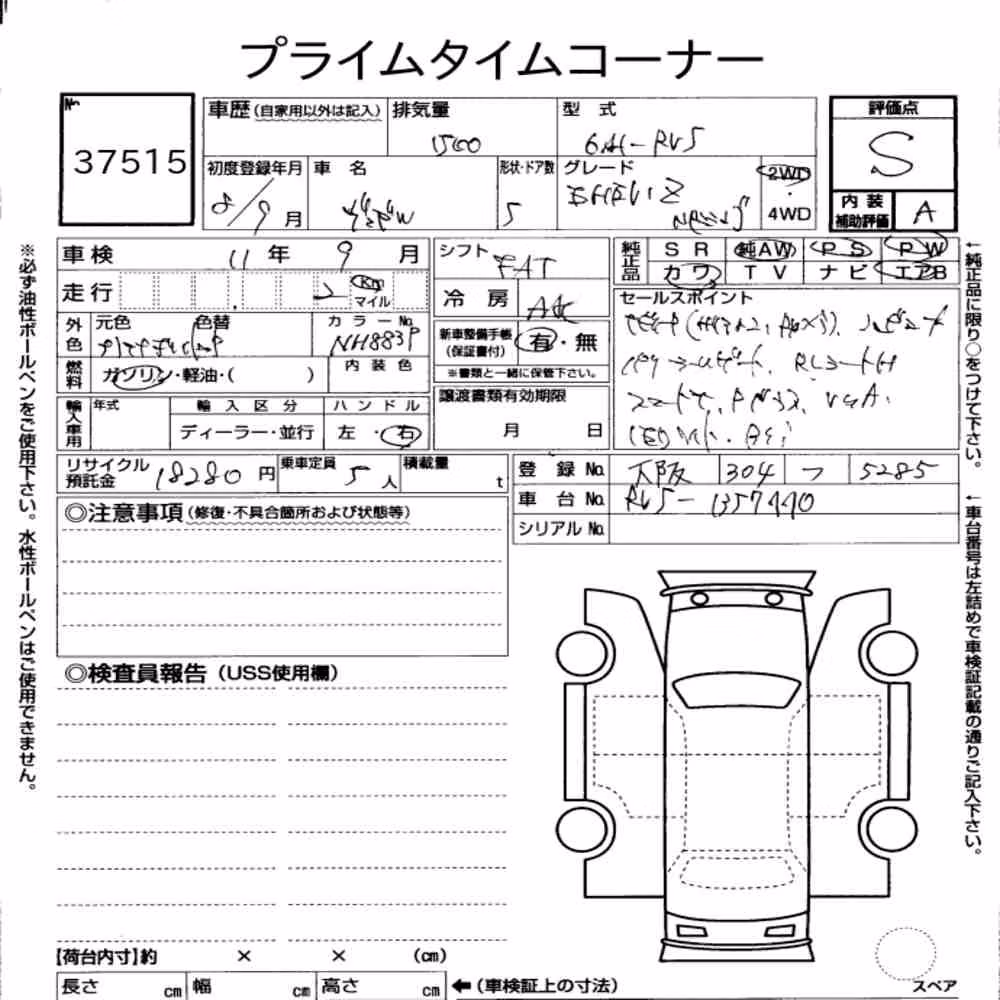 プライムタイムコーナー
No.
37515
車歴(自家用以外は記入)
排気量
1500
型 式
6AA-RV5
評価点
S
初度登録年月
8/9月
車 名
ヴェゼル
形状・ドア数
5
グレード
EHEV:Z
2WD
4WD
内装補助評価
A
車検 11年 9月
走行 2 Km マイル
シフト
FAT
冷 房
AAC
純正品
SR 純AW PS PW
カワ TV ナビ エアB
外色
元色 色替
カラーNo.
NH883P
燃料
ガソリン・軽油・( )
内 装 色
新車整備手帳
(保証書付)
有・無
※書類と一緒に保管下さい。
セールスポイント
輸入車用
年式
輸 入 区 分
ディーラー・並行
ハ ン ド ル
左・右
譲渡書類有効期限
月 日
リサイクル預託金 18280円
乗車定員 5人
積載量 t
登 録 No. 大阪 304 フ 5285
車 台 No. RV5-1357440
シリアル No.
◎注意事項(修復・不具合箇所および状態等)
◎検査員報告(USS使用欄)
【荷台内寸】約 × × (cm)
長さ cm 幅 cm 高さ cm ←(車検証上の寸法)
スペア
※必ず油性ボールペンをご使用下さい。水性ボールペンはご使用できません。
←純正品に限り○をつけて下さい。
←車台番号は左詰めで車検証記載の通りご記入下さい。